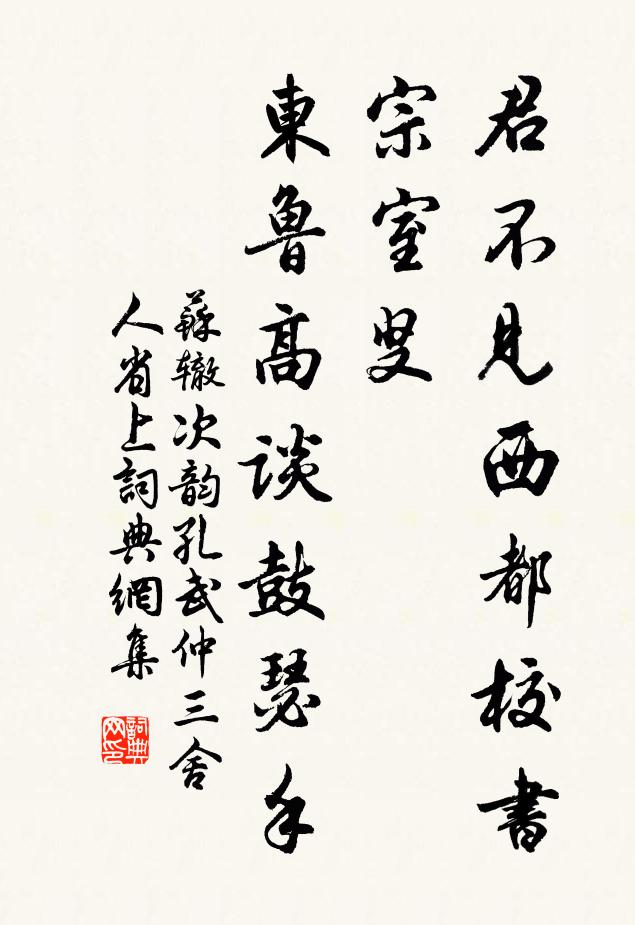 君不見西都校書
宗室叟
東魯高談鼓瑟手
蘇辙次韵孔武仲三舍
人省上詞典網集
詞典
网印